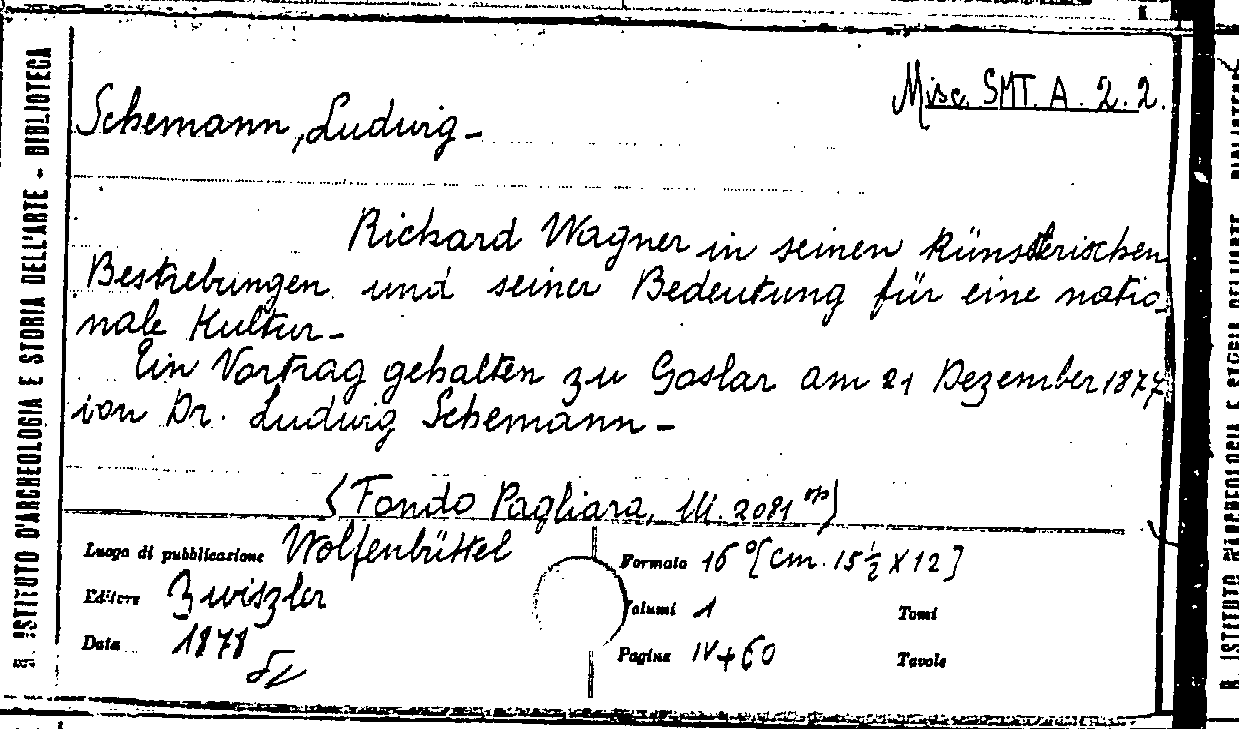 R. ISTITUTO D'ARCHEOLOGIA E STORIA DELL'ARTE - BIBLIOTECA
Misc. SMT. A. 2. 2.
Schemann, Ludwig -
Richard Wagner in seinen künstlerischen
Bestrebungen und seiner Bedeutung für eine natio
nale Kultur -
Ein Vortrag gehalten zu Goslar am 21 Dezember 1877
von Dr. Ludwig Schemann -
(Fondo Pagliara, III. 2081
Luogo di pubblicazione Wolfenbüttel
Formato 16° [cm. 15 ½ X 12]
Editore Zwiszler
Volumi 1
Tomi
Data 1878
Pagine IV+60
Tavole